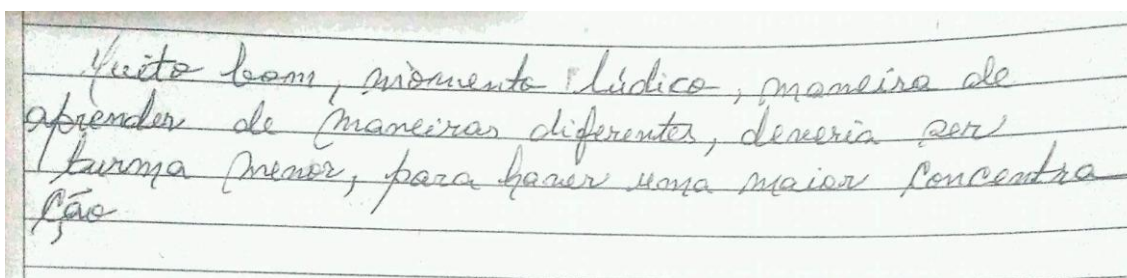 Muito bom, momento lúdico, maneira de
aprender de maneiras diferentes, deveria ser
turma menor, para haver uma maior concentra
ção